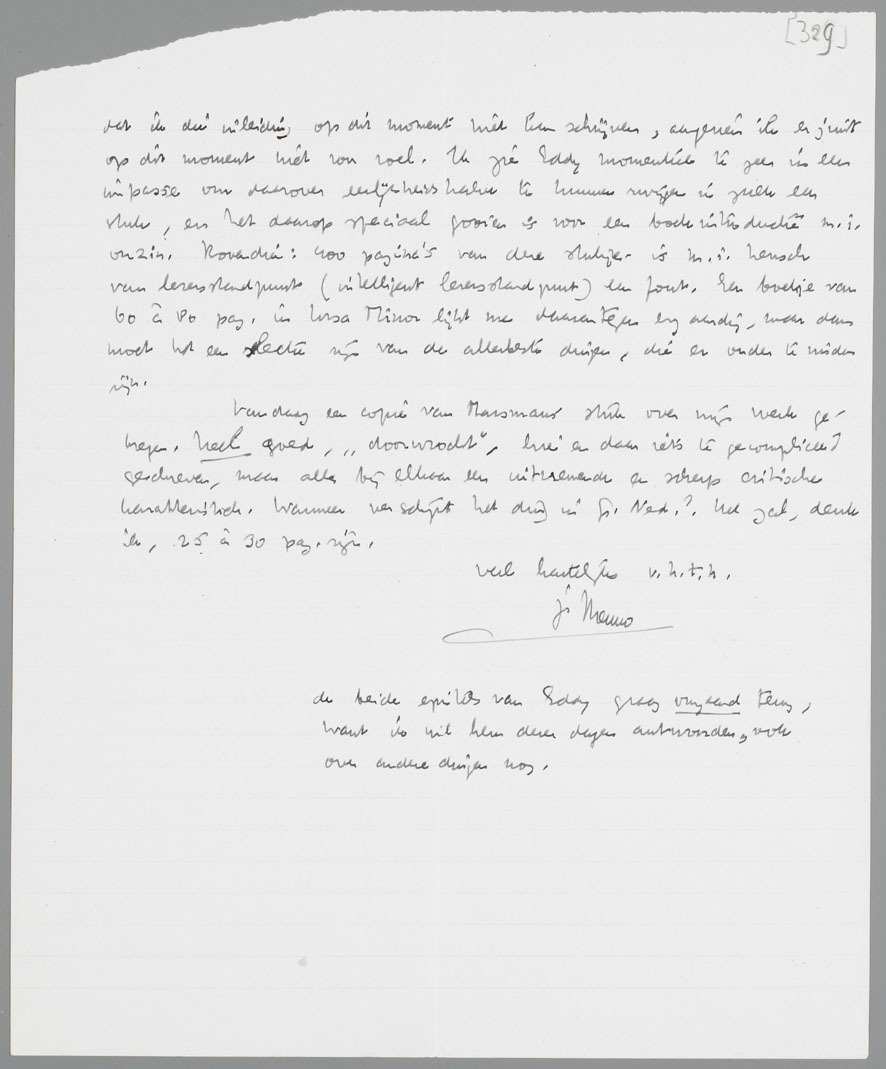 [329]
dat ik die inleiding op dit moment niet kan schrijven, aangezien ik er juist
op dit moment niet voor voel. Ik zie Eddy momenteel te zeer in een
impasse om daarover eerlijkheidshalve te kunnen zwijgen in zulk een
stuk, en het daarop speciaal gooien is voor een boekintroductie m.i.
onzin. Bovendien: 400 pagina's van deze stukjes is m.i. heusch
van lezersstandpunt (intelligent lezersstandpunt) een fout. Een boekje van
60 à 80 pag. in Ursa Minor lijkt me daarentegen erg aardig, maar dan
moet het een selectie zijn van de allerbeste dingen, die er onder te vinden
zijn.
Vandaag een copie van Marsmans stuk over mijn werk ge-
kregen. Heel goed, „doorwrocht", hier en daar iets te gecompliceerd
geschreven, maar alles bij elkaar een uitstekende en scherp critische
karakteristiek. Wanneer verschijnt het ding in Gr. Ned.? Het zal, denk
ik, 25 à 30 pag. zijn.
veel hartelijks v.h.t.h.
je Menno
de beide epistels van Eddy graag omgaand terug,
want ik wil hem dezer dagen antwoorden, ook
over andere dingen nog.